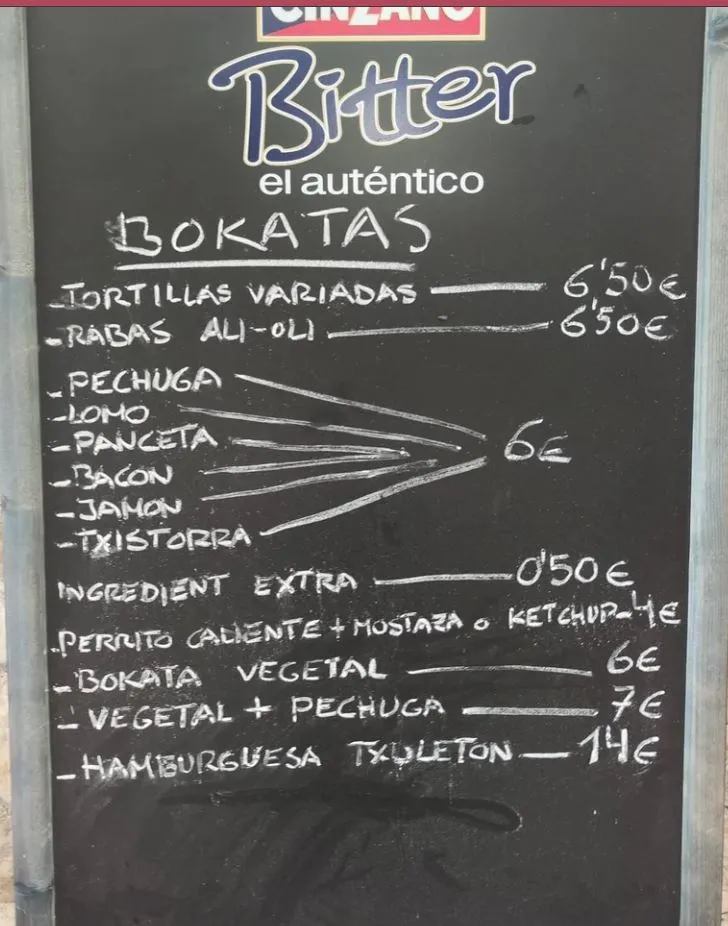 CINZANO
Bitter
el auténtico
BOKATAS
-TORTILLAS VARIADAS — 6'50€
-RABAS ALI-OLI — 6'50€
-PECHUGA
-LOMO
-PANCETA 6€
-BACON
-JAMON
-TXISTORRA
INGREDIENT EXTRA — 0'50€
-PERRITO CALIENTE + MOSTAZA o KETCHUP-4€
-BOKATA VEGETAL — 6€
-VEGETAL + PECHUGA — 7€
-HAMBURGUESA TXULETON — 14€